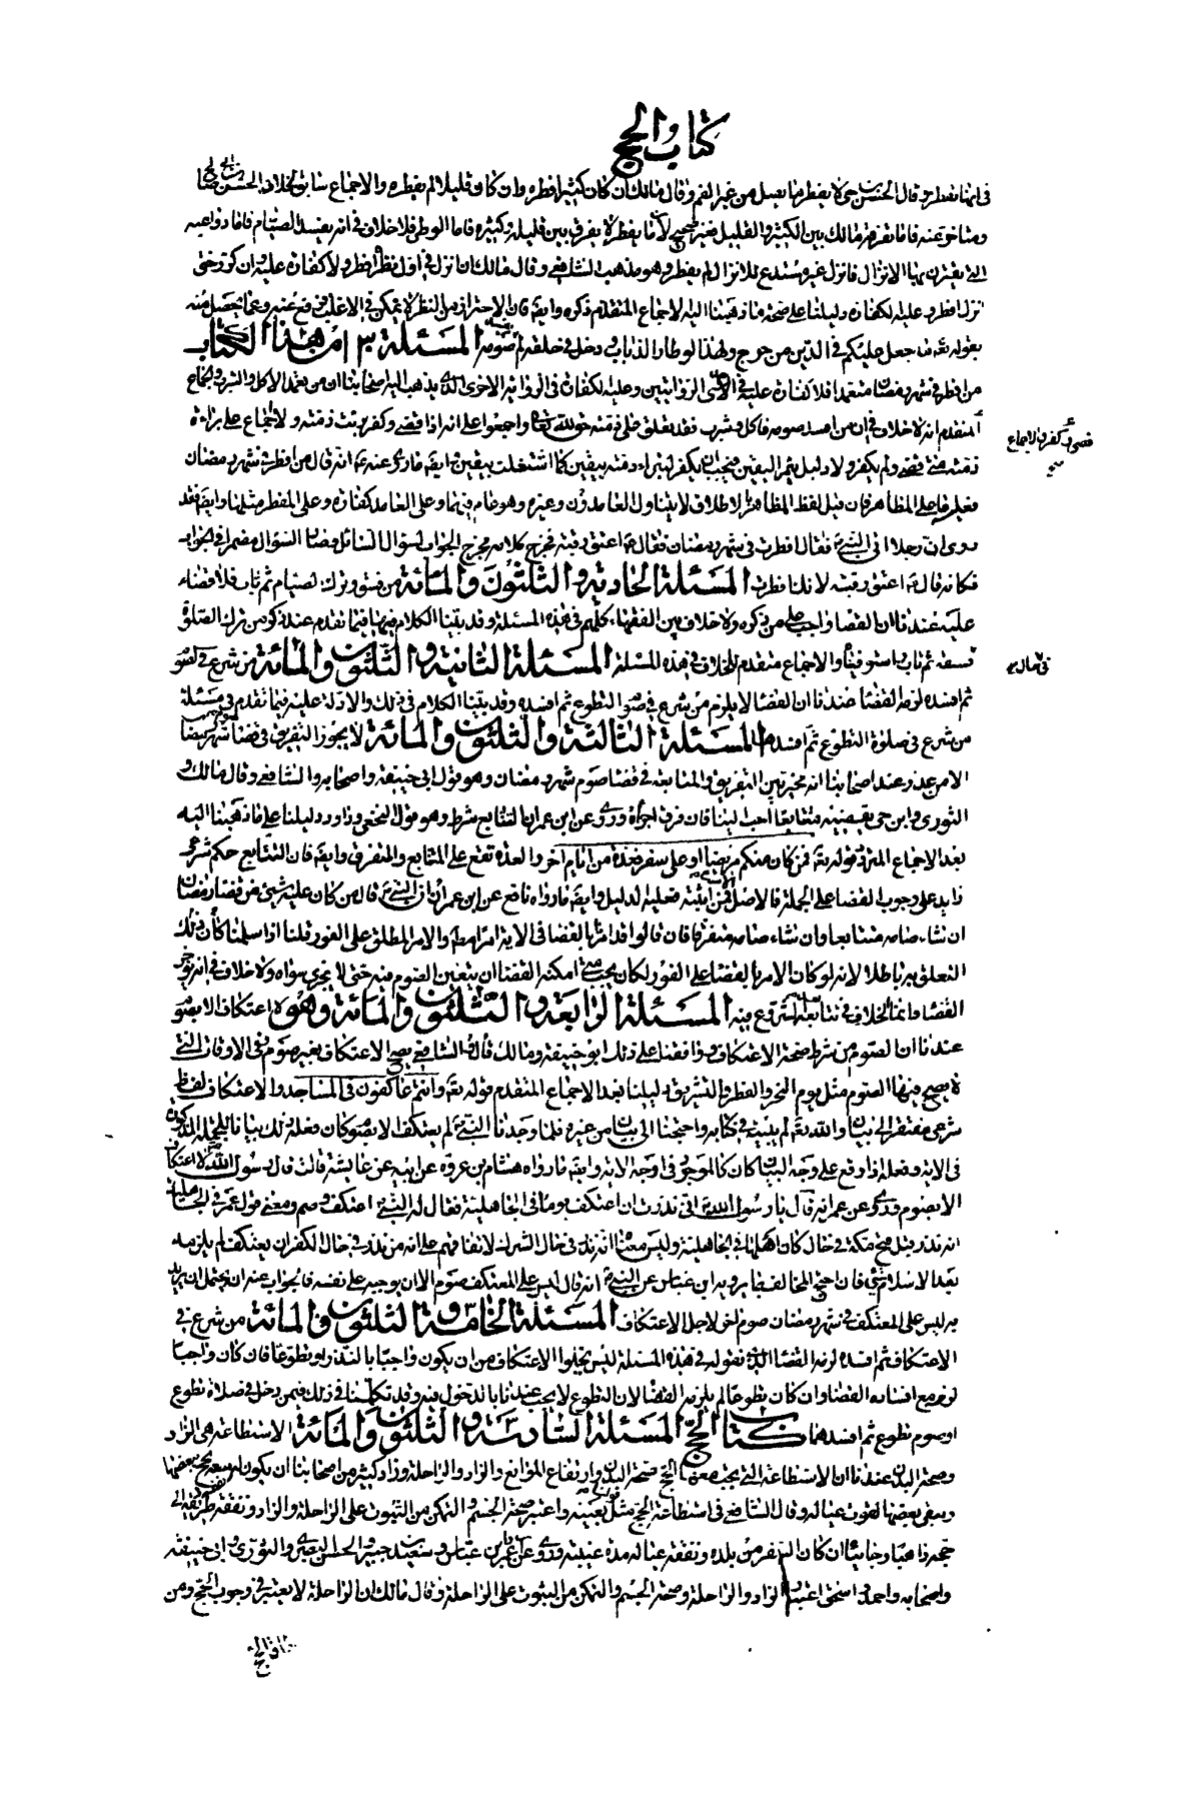 كتاب الحج
في انها تفطر وقال الحسن بن حي لا يفطر ما يصل من غير الفم وقال مالك ان كان كثيرا فطره وان كان قليلا لم يفطره والاجماع سابق لخلاف الحسن بن صالح
ومتاخر عنه فاما تفرقة مالك بين الكثير والقليل فغير صحيح لان ما يفطر لا يفرق بين قليله وكثيره فاما الوطي فلا خلاف في انه يفسد الصيام فاما دواعيه
التي يقترن بها الانزال فانزل غير مستدع للانزال لم يفطر وهو مذهب الشافعي وقال مالك ان انزل في اول نظرة افطر ولا كفارة عليه وان كرر حتى
انزل افطر وعليه الكفارة دليلنا على صحة ما ذهبنا اليه الاجماع المتقدم ذكره وايضا فان الاحتراز من النظر لا يمكن في الاغلب عنه وعما يحصل منه
بقوله تعه ما جعل عليكم في الدين من حرج ولهذا لو طار الذباب ودخل في حلقه لم صومه المسئلة ١٣٠ من هذا الكتاب
من افطر في شهر رمضان متعمدا فلا كفارة عليه في الروايتين وعليه الكفارة في الرواية الاخرى الذي يذهب اليه اصحابنا ان من تعمد الاكل والشرب والجماع
المتقدم انه لا خلاف في ان من افسد صومه فاكل وشرب فقد تعلق على ذمته حق لله تعا واجمعوا على انه اذا قضى وكفر برئت ذمته ولا اجماع على براءة
قضى وكفر والاجماع
ذمته متى قضى ولم يكفر ولا دليل يثمر اليقين فيجب ان يكفر لتبرا ذمته بيقين كما اشتغلت بيقين وايضا فما روى عنه ع انه قال من افطر في شهر رمضان
فعليه ما على المظاهر فان قيل لفظ المظاهر الاطلاق لا يتناول العامد دون وغيره وهو عام فيهما وعلى العامد كفارة وعلى المفطر مثلها وايضا فقد
روى ان رجلا اتى النبي ع فقال افطرت في شهر رمضان فقال ع اعتق رقبة فخرج كلامه مخرج الجواب لسؤال السائل فصار السؤال مضمرا في الجواب
فكانه قال ع اعتق رقبة لانك افطرت المسئلة الحادية والثلثون والمائة من فسق وترك الصيام ثم تاب فلا قضاء
عليه عندنا ان القضا واجب على من ذكره ولا خلاف بين الفقهاء كلهم في هذه المسئلة وقد بينا الكلام فيها فيما تقدم عند ذكر من ترك الصلوة
في حال
فسقه ثم تاب واستوفينا والاجماع متقدم الخلاف في هذه المسئلة المسئلة الثانية والثلثون والمائة من شرع في الصوم
ثم افسده لزمه القضا عندنا ان القضا لا يلزم من شرع في صوم التطوع ثم افسده وقد بينا الكلام في ذلك والادلة عليه فيما تقدم في مسئلة
من شرع في صلوة التطوع ثم افسدها المسئلة الثالثة والثلثون والمائة لا يجوز التفريق في قضا شهر رمضان
الا من عذر عند اصحابنا انه مخير بين التفريق والمتابعة في قضا صوم شهر رمضان وهو قول ابي حنيفة واصحابه والشافعي وقال مالك و
الثوري وابن حي يقضيه متتابعا احب الينا فان فرق اجزاه وروى عن ابن عمر ان التتابع شرط وهو قول النخعي وداود دليلنا على ما ذهبنا اليه
بعد الاجماع المتردد قوله تعه فمن كان منكم مريضا او على سفر فعدة من ايام اخر والعدة تقع على المتتابع والمتفرق وايضا فان التتابع حكم شرعي
زايد على وجوب القضا على الجملة فالاصل فمن اثبته فعليه الدليل وايضا ما رواه نافع عن ابن عمر ان النبي ع قال من كان عليه شيئ من قضا رمضان
ان شاء صامه متتابعا وان شاء صامه متفرقا فان قالوا قد امرنا بالقضا في الاية امرا مطلقا والامر المطلق على الفور قلنا اذا سلمنا كان ذلك
التعلق به باطلا لانه لو كان الامر بالقضا على الفور لكان يجب متى امكنه القضا ان يتعين الصوم فيه حتى لا يجزي سواه ولا خلاف في انه يؤخر
القضا وانما الخلاف في تتابعه المسئلة الرابعة والثلثون والمائة وهو لا اعتكاف الا بصوم
عندنا ان الصوم من شرط صحة الاعتكاف ووافقنا على ذلك ابو حنيفة ومالك قال الشافعي يصح الاعتكاف بغير صوم وفي الاوقات التي
لا يصح فيها الصوم مثل يوم النحر والفطر والتشريق دليلنا بعد الاجماع المتقدم قوله تعه وانتم عاكفون في المساجد والاعتكاف لفظ
شرعي مفتقر الى بيان والله تعه لم يبينه في كتابه واحتجنا الى بيان من غيره فلما وجدنا النبي ع لم يعتكف الا بصوم كان فعله ذلك بيانا للجملة المذكورة
في الاية وفعله اذا وقع على وجه البيان كان كالموجود في اوجه الاية وايضا ما رواه هشام بن عروة عن ابيه عن عايشة قالت قال رسول الله ص لا اعتكاف
الا بصوم وروى عن عمر انه قال يا رسول الله ع اني نذرت ان اعتكف يوما في الجاهلية فقال له النبي ع اعتكف وصم ومعنى قول عمر في الجاهلية
انه نذر قبل فتح مكة في حال كان اهلها في الجاهلية وليس معناه انه نذر في حال الشرك لاتفاقهم على انه من نذر في حال الكفر ان يعتكف لم يلزمه
بعد الاسلام شئ فان احتج المخالف بما يرويه ابن عباس عن النبي ع انه قال ليس على المعتكف صوم الا ان يوجبه على نفسه فالجواب عنه ان يحتمل ان يريد
به ليس على المعتكف في شهر رمضان صوم اخر لاجل الاعتكاف المسئلة الخامسة والثلثون والمائة من شرع في
الاعتكاف ثم افسده لزمه القضا الذي نقوله في هذه المسئلة ليس يخلوا الاعتكاف من ان يكون واجبا بالنذر او تطوعا فان كان واجبا
لزم مع افساده القضا وان كان تطوعا لم يلزمه القضا لان التطوع لا يجب عندنا بالدخول فيه وقد تكلمنا في ذلك فيمن دخل في صلاة تطوع
او صوم تطوع ثم افسدهما كتاب الحج المسئلة السادسة والثلثون والمائة الاستطاعة هي الزاد
وصحة البدن عندنا ان الاستطاعة التي يجب معها الحج صحة البدن وارتفاع الموانع والزاد والراحلة وزاد كثير من اصحابنا ان يكون له سعة يحج ببعضها
ويبقى بعضها لقوت عياله وقال الشافعي في استطاعة الحج مثل قولنا بعينه واعتبر صحة الجسم والتمكن من الثبوت على الراحلة والزاد ونفقة طريقه الى
حجه ذاهبا وجائيا ان كان السفر من بلده ونفقة عياله مدة غيبته وروى عن عمر وابن عباس وسعيد بن جبير والحسن البصري والثوري وابي حنيفة
واصحابه واحمد واسحق اعتبار الزاد والراحلة وصحة الجسم والتمكن من الثبوت على الراحلة وقال مالك ان الراحلة لا يعتبر في وجوب الحج ومن